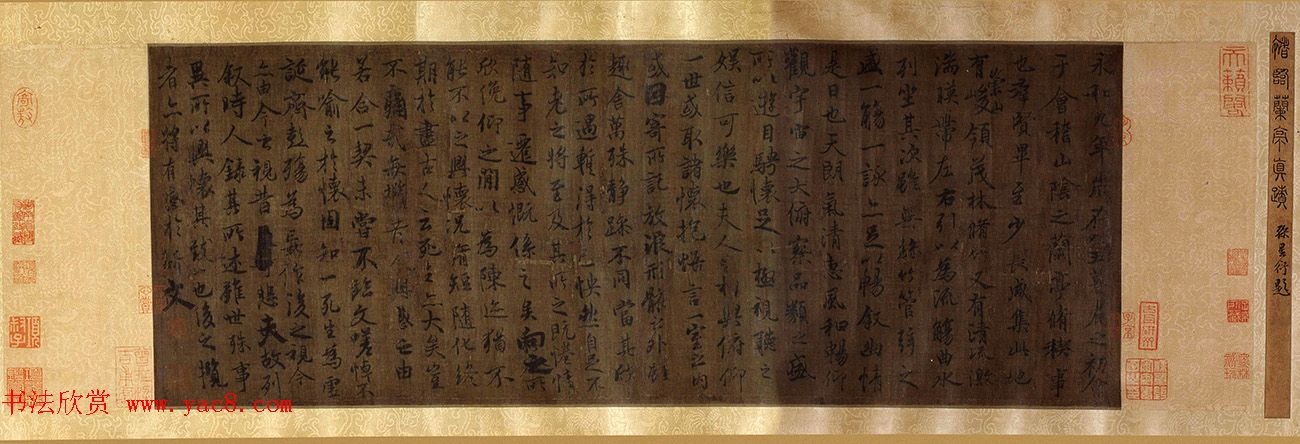 褚臨蘭亭真蹟 孫星衍題
天籟閣
永和九年歲在癸丑暮春之初會
于會稽山陰之蘭亭脩稧事
也群賢畢至少長咸集此地
有崇山峻領茂林脩竹又有清流激
湍暎帶左右引以為流觴曲水
列坐其次雖無絲竹管弦之
盛一觴一詠亦足以暢敘幽情
是日也天朗氣清惠風和暢仰
觀宇宙之大俯察品類之盛
所以遊目騁懷足以極視聽之
娛信可樂也夫人之相與俯仰
一世或取諸懷抱悟言一室之內
或因寄所託放浪形骸之外雖
趣舍萬殊靜躁不同當其欣
於所遇暫得於己怏然自足不
知老之將至及其所之既惓情
隨事遷感慨係之矣向之所
欣俛仰之閒以為陳迹猶不
能不以之興懷況脩短隨化終
期於盡古人云死生亦大矣豈
不痛哉每攬昔人興感之由
若合一契未嘗不臨文嗟悼不
能喻之於懷固知一死生為虛
誕齊彭殤為妄作後之視今
亦由今之視昔悲夫故列
敘時人錄其所述雖世殊事
異所以興懷其致一也後之攬
者亦將有感於斯文
书法欣赏 www.yac8.com